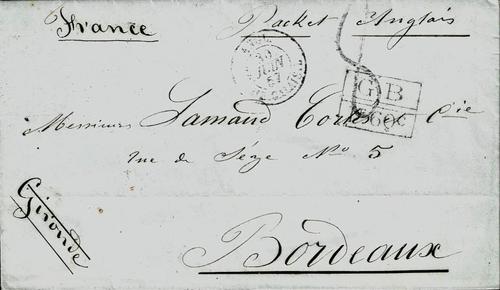 France Packet Anglais
GB
1F60c
Messieurs Lamaud Cortès & Cie
rue de Sèze No 5
Gironde
Bordeaux